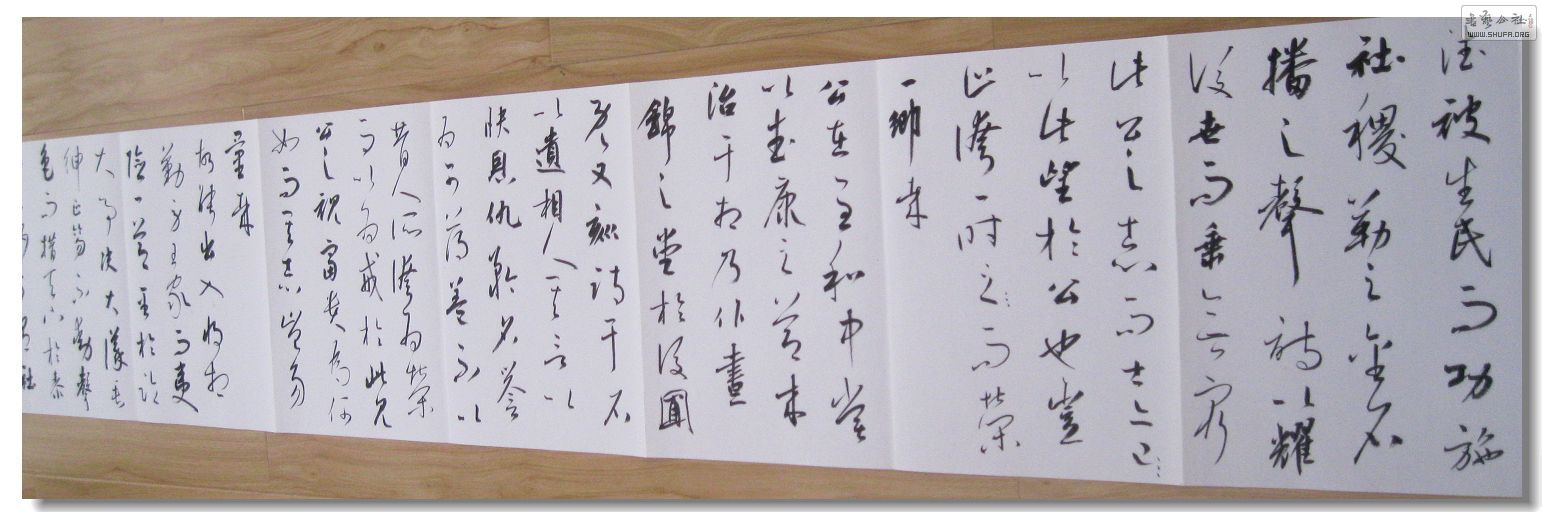 書藝公社
WWW.SHUFA.ORG
德被生民而功施
社稷勒之金石
播之聲詩以耀
後世而垂無窮
此公之志而士亦已
以此望於公也豈
止誇一時之而榮
一鄉哉
公在至和中嘗
以武康之節来
治于相乃作晝
錦之堂於後圃
既又刻詩于石
以遺相人其言以
快恩仇矜名譽
為可薄蓋不以
昔人所誇為榮
而以為戒於此見
公之視富貴為何
如而其志豈易
量哉
故能出入將相
勤勞王家而夷
險一節至於臨
大事決大議垂
紳正笏不動聲
色而措天下於泰
社